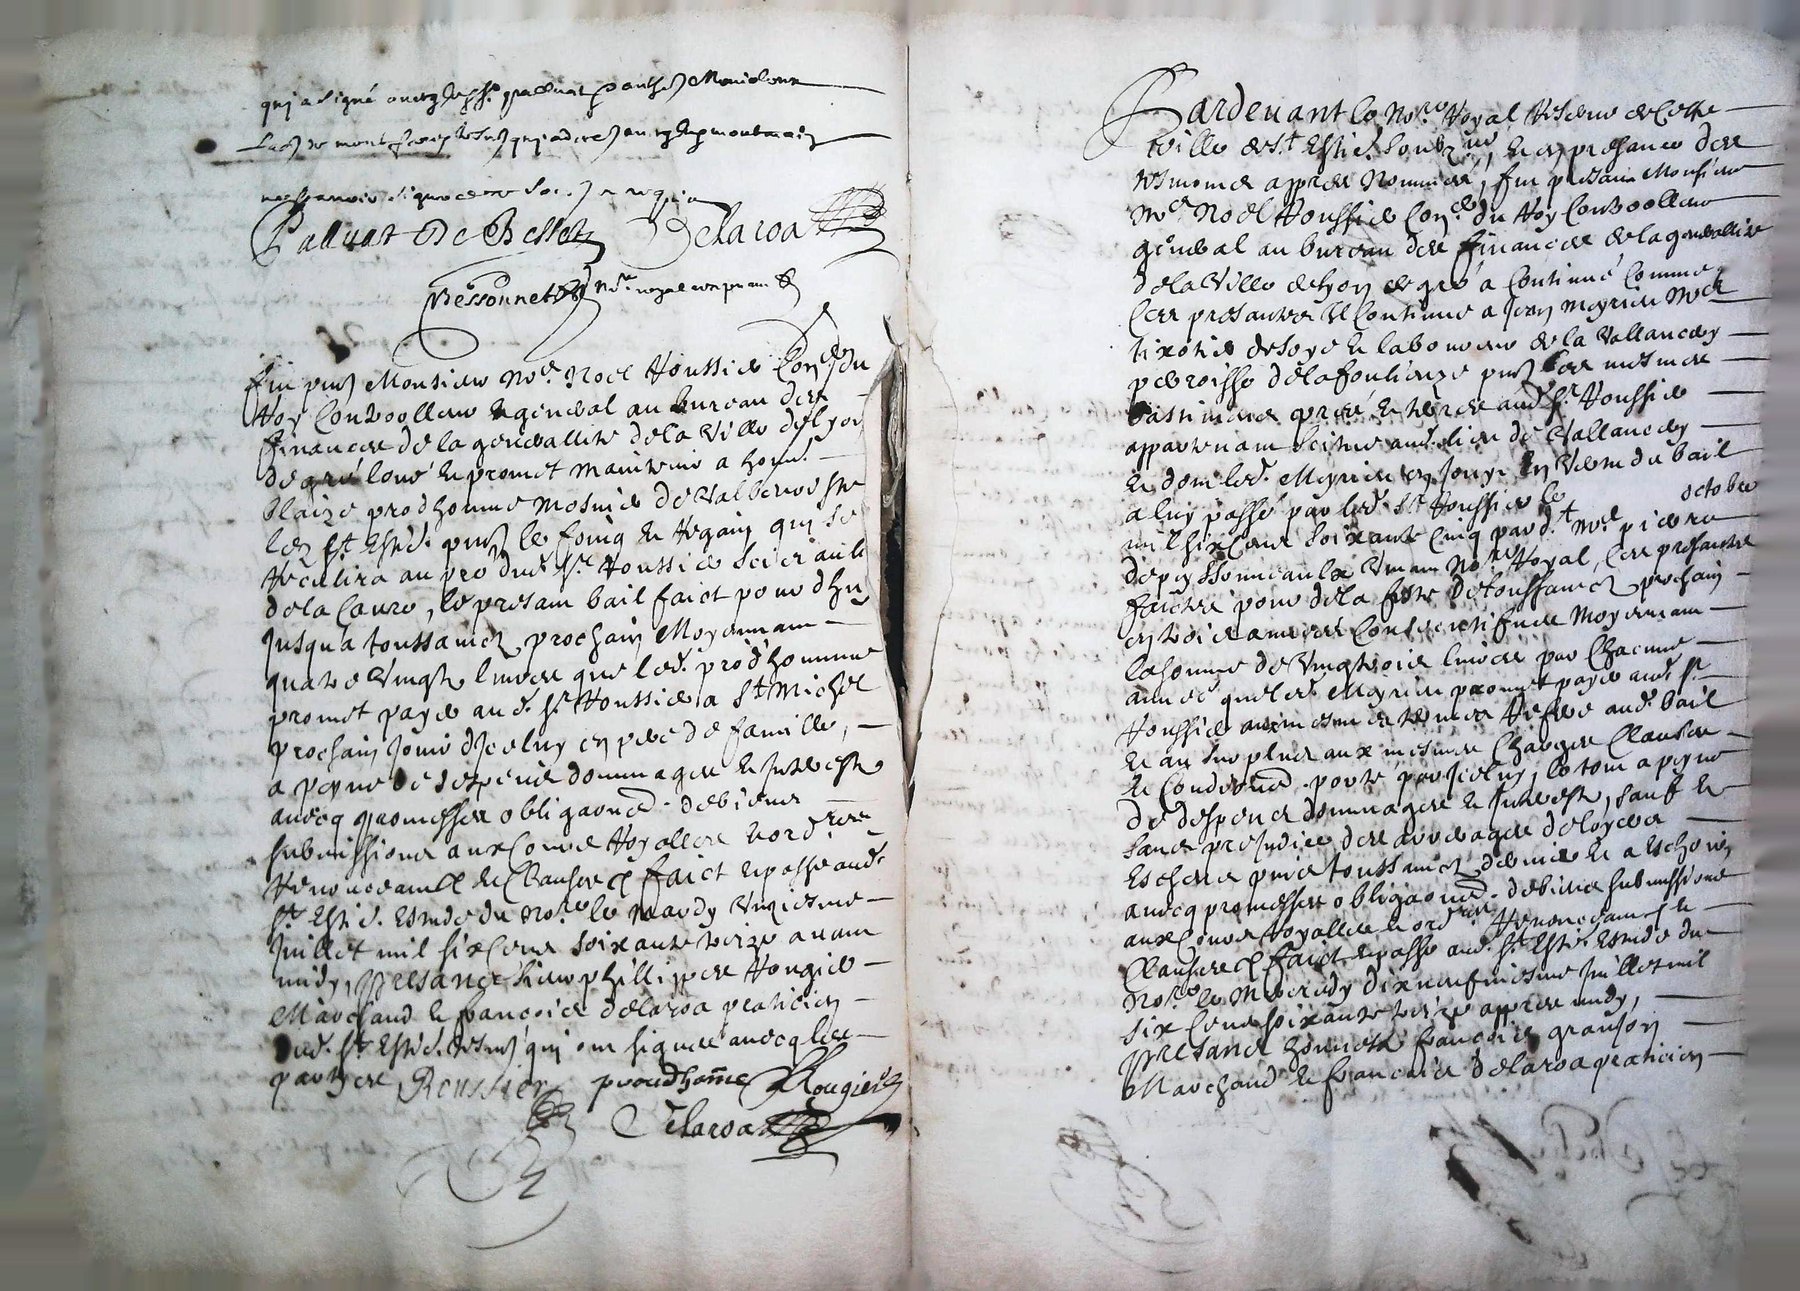 qui a signé avecq led sr
Palluat De Besset Delaroa
Bessonnet nore royal
Fut pnt Monsieur Me. Noel Roussier Conser. du
Roy Controolleur general au bureau des
finances de la generallite de la Ville de Lyon
de gré loué et promet maintenir a honn.
Blaize prodhomme mosnier de Valbenoiste
lez St. Estie. pnt le foing et Regain qui se
Recullira au pre dud. sr. Roussier
de la Caure, le presant bail faict pour d'huy
Jusqu'a toussainctz prochain Moyennant
quatre Vingtz livres que led. prodhomme
promet payer aud. sr. Roussier a St. Michel
prochain Jouir d'Icelluy en pere de famille,
a peyne de despens dommages et Interestz
avecq promesses obligaons. de biens
submissions aux Cours Royalles et ordres
Renonceans et Clauses faict et passé aud.
St. Estie. Estude du nore. le mardy Unziesme
Juillet mil six Cens soixante treize avant
midy, Presance sieur phillippes Rougier
Marchand et françois delaroa praticien
dud. St. Estie. tesmoingz qui ont signés avecq les
partyes Roussier proudhome Rougier
Delaroa
Pardevant le Nore. Royal Reservé de Cette
Ville de St. Estie. soubzné, et en presance des
tesmoins appres Nommés, fut presant Monsieur
Me. Noel Roussier Conser. du Roy Controolleur
general au bureau des finances de la generallite
de la Ville de Lyon de gré a Continué Comme
Ces presantes Il Continue a Jean Meyrieu Me.
tixotier de soye et laboureur de la Vallancey
perroisse de la foulieuze pnt les mesmes
bastimens prés et terres aud. sr. Roussier
appartenant scitués aud. lieu de Vallancey
et dont led. Meyrieu en Jouyt En Vertu du bail
a luy passé par led. sr. Roussier le octobre
mil six Cens soixante Cinq par dt. Me. pierre
depeyssonneaulx Vivant Nore. Royal, Ces presantes
faictes pour de la feste de toussainctz prochain
en trois années Consecutifves Moyennant
la somme de Vingt trois livres par Chacune
année que led. Meyrieu promet payer aud. sr.
Roussier aux mesmes termes Refferé aud. bail
et au surplus aux mesmes Charges Clauses
et Conditions. porté par Icelluy, le tout a peyne
de despens dommages et Interestz, sauf et
sans prejudice des arrerages de loyers
Escheus puis toussainctz dernier et a Eschoir
avecq promesses obligaons. de biens submissions
aux Cours Royalles et ordres Renonceans et
Clauses faict et passé aud. St. Estie. Estude du
Nore. le Mercredy dix neufviesme Juillet mil
six Cens soixante treize appres midy,
Presance honneste françois granjon
Marchand et françois delaroa praticien